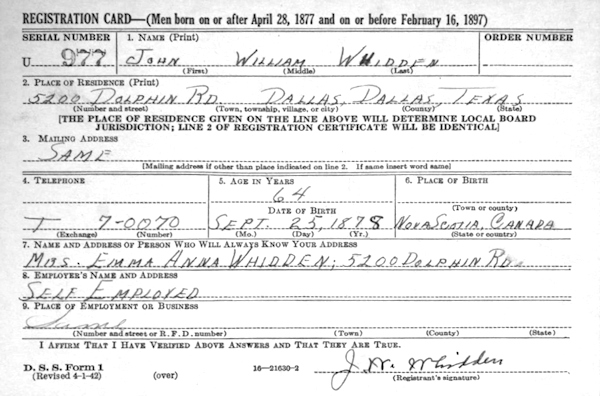 REGISTRATION CARD—(Men born on or after April 28, 1877 and on or before February 16, 1897)
SERIAL NUMBER 1. NAME (Print) ORDER NUMBER
U 977 JOHN WILLIAM WHIDDEN
(First) (Middle) (Last)
2. PLACE OF RESIDENCE (Print)
5200 DOLPHIN RD. DALLAS, DALLAS, TEXAS
(Number and street) (Town, township, village, or city) (County) (State)
[THE PLACE OF RESIDENCE GIVEN ON THE LINE ABOVE WILL DETERMINE LOCAL BOARD
JURISDICTION; LINE 2 OF REGISTRATION CERTIFICATE WILL BE IDENTICAL]
3. MAILING ADDRESS
SAME
[Mailing address if other than place indicated on line 2. If same insert word same]
4. TELEPHONE 5. AGE IN YEARS 6. PLACE OF BIRTH
64
(Town or county)
DATE OF BIRTH
T 7-0070 SEPT. 25, 1878 NOVA SCOTIA, CANADA
(Exchange) (Number) (Mo.) (Day) (Yr.) (State or country)
7. NAME AND ADDRESS OF PERSON WHO WILL ALWAYS KNOW YOUR ADDRESS
MRS. EMMA ANNA WHIDDEN; 5200 DOLPHIN RD.
8. EMPLOYER'S NAME AND ADDRESS
SELF EMPLOYED
9. PLACE OF EMPLOYMENT OR BUSINESS
Same
(Number and street or R. F. D. number) (Town) (County) (State)
I AFFIRM THAT I HAVE VERIFIED ABOVE ANSWERS AND THAT THEY ARE TRUE.
J. W. Whidden
D. S. S. Form 1
(Revised 4-1-42) (over) 16—21630-2 (Registrant's signature)